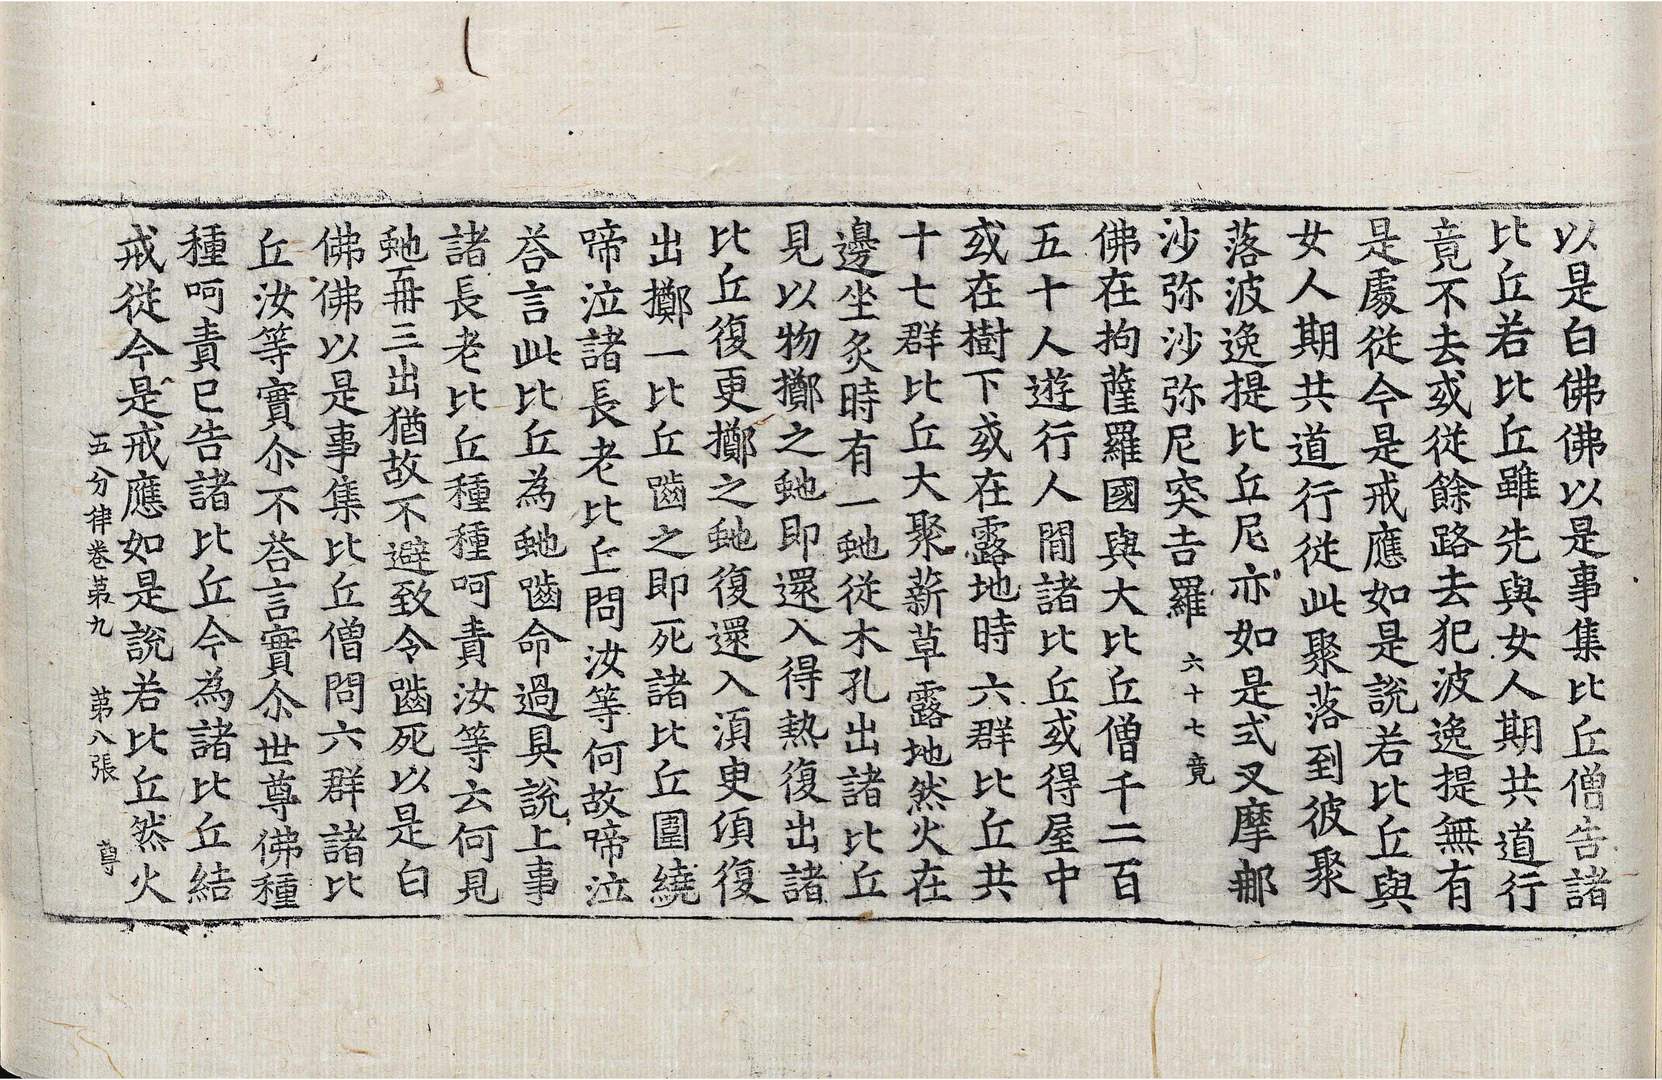 以是白佛佛以是事集比丘僧告諸
比丘若比丘雖先與女人期共道行
竟不去或從餘路去犯波逸提無有
是處從今是戒應如是說若比丘與
女人期共道行從此聚落到彼聚
落波逸提比丘尼亦如是式叉摩那
沙弥沙弥尼突吉羅 六十七竟
佛在拘薩羅國與大比丘僧千二百
五十人遊行人間諸比丘或得屋中
或在樹下或在露地時六群比丘共
十七群比丘大聚薪草露地然火在
邊坐炙時有一虵從木孔出諸比丘
見以物擲之虵即還入得熱復出諸
比丘復更擲之虵復還入須臾復
出擲一比丘嚙之即死諸比丘圍繞
啼泣諸長老比丘問汝等何故啼泣
荅言此比丘為虵嚙命過具說上事
諸長老比丘種種呵責汝等云何見
虵再三出猶故不避致令嚙死以是白
佛佛以是事集比丘僧問六群諸比
丘汝等實尒不荅言實尒世尊佛種
種呵責已告諸比丘今為諸比丘結
戒從今是戒應如是說若比丘然火
五分律卷第九 第八張 尊